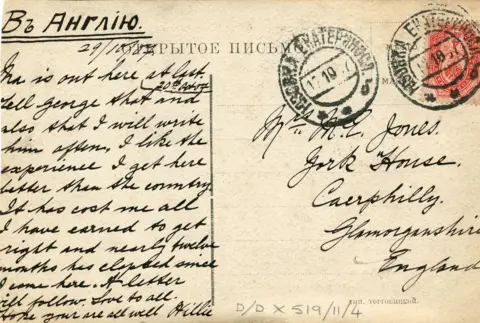 Въ Англію.
29/11
ОТКРЫТОЕ ПИСЬМО
is out here at last.
Tell George that and
also that I will write
him often, I like the
experience I get here
better than the country.
It has cost me all
I have earned to get
right and nearly twelve
months has elapsed since
I came here. A letter
will follow. Love to all.
Hope you are all well Willie
Mrs M. L. Jones.
York House.
Caerphilly.
Glamorganshire
England
тип. тогговицкой.
D/D X 519/11/4